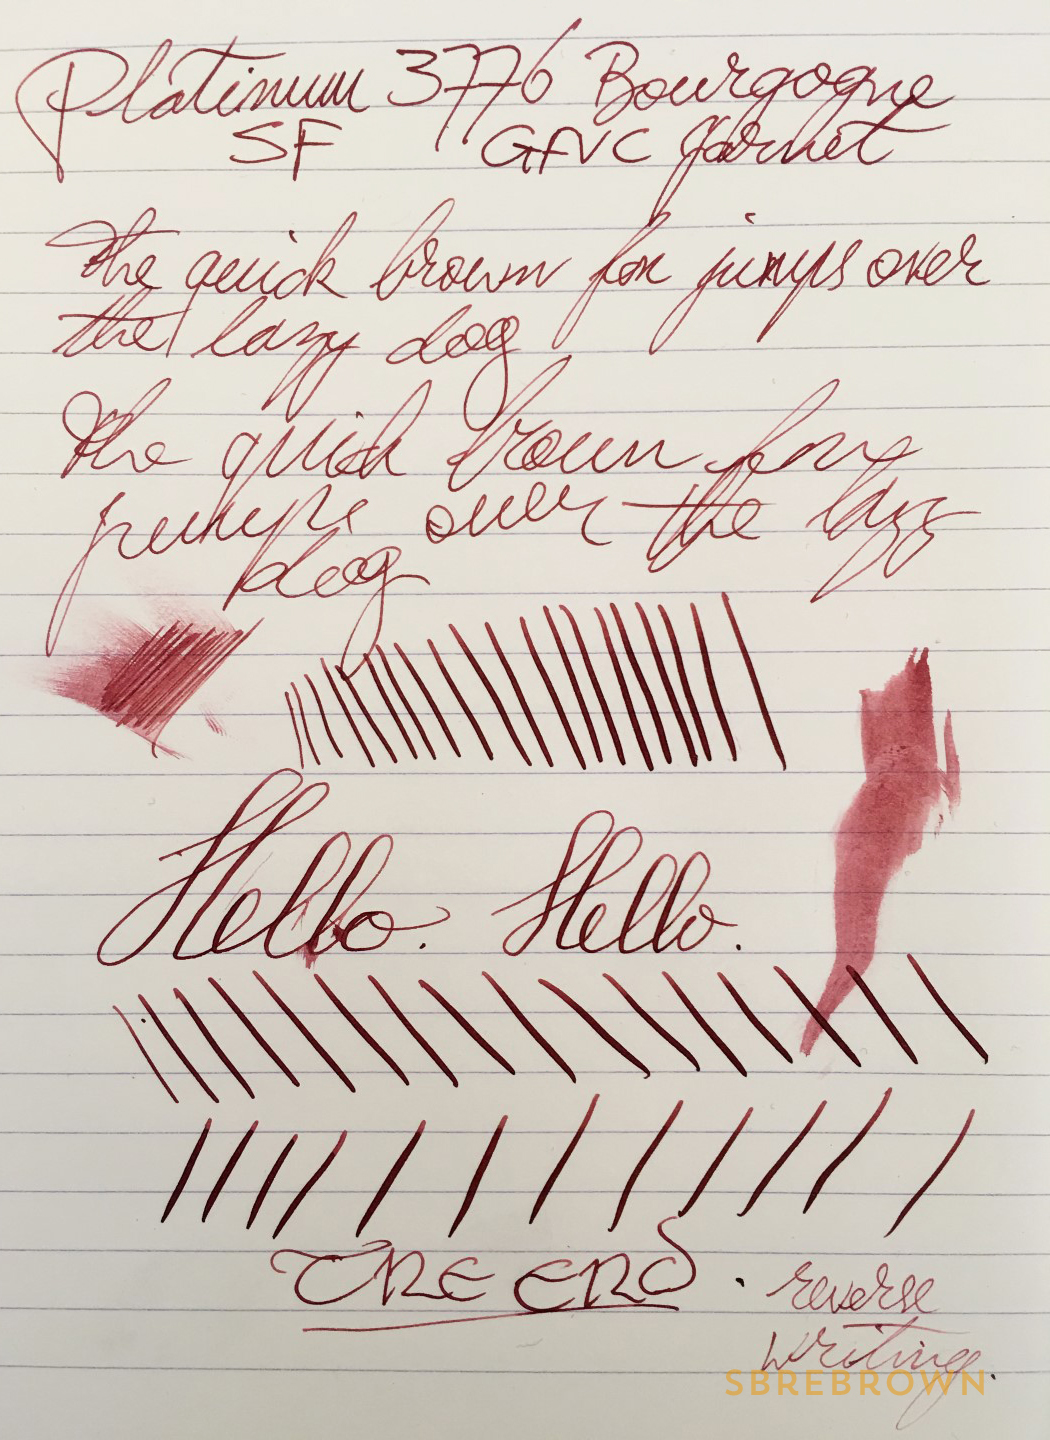 Platinum 3776 Bourgogne
SF GFVC Garnet
The quick brown fox jumps over
the lazy dog
The quick brown fox
jumps over the lazy
dog
Hello. Hello.
The End.
reverse
writing.
SBREBROWN